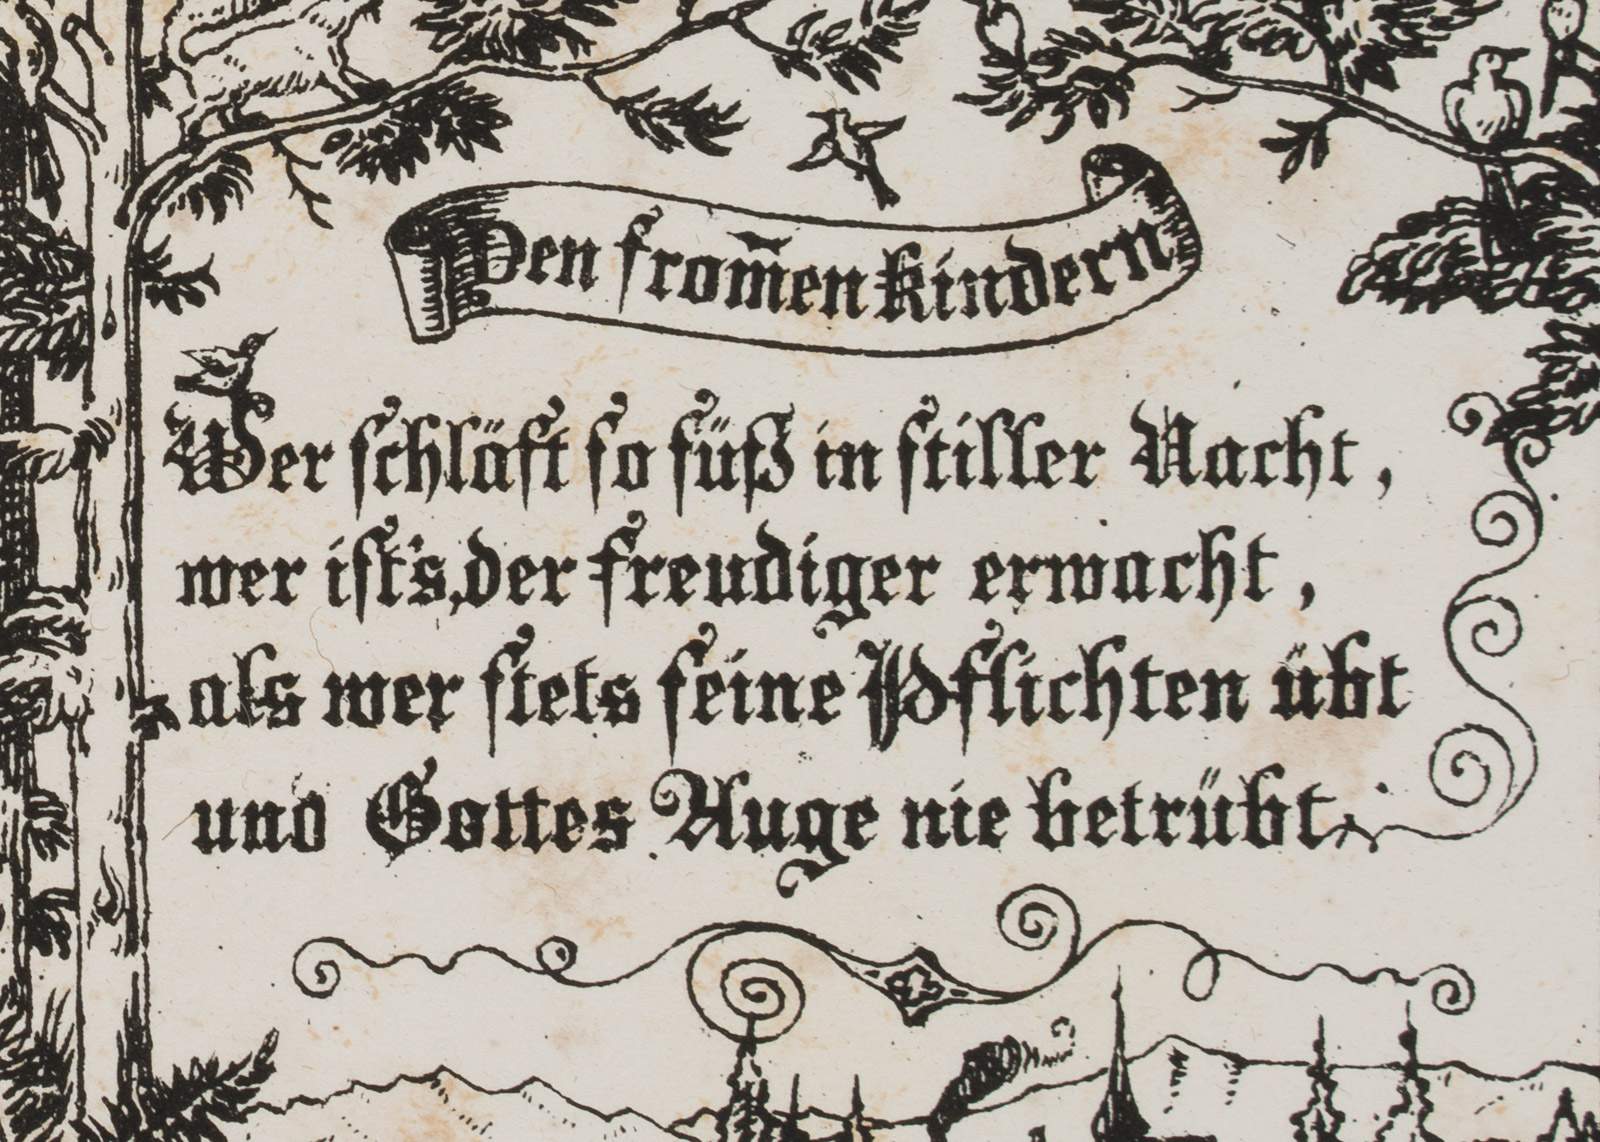 Den from̅en Kindern
Wer schläft so süß in stiller Nacht,
wer ist's, der freudiger erwacht,
als wer stets seine Pflichten übt
und Gottes Auge nie betrübt.